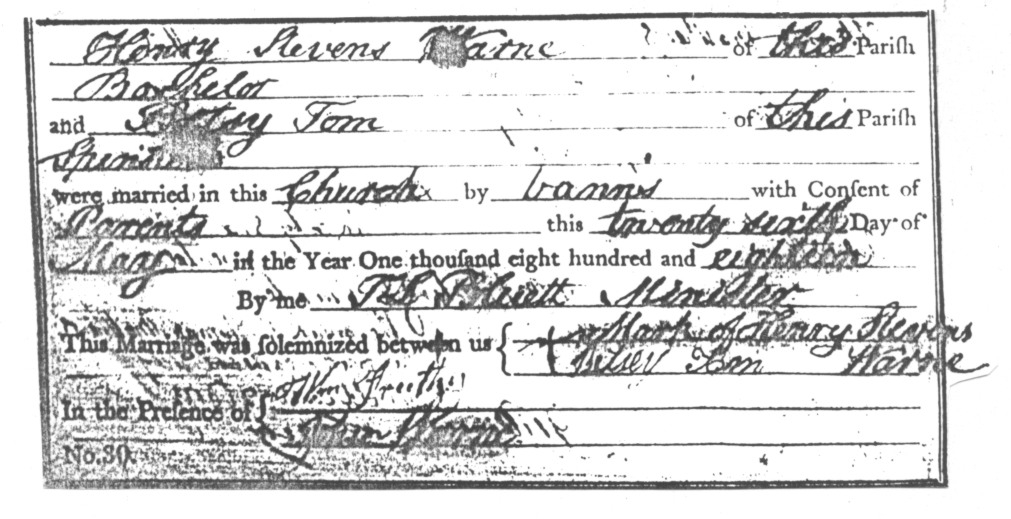 Henry Stevens Warne of this Pariſh
Bachelor
and Betsy Tom of this Pariſh
Spinster
were married in this Church by banns with Conſent of
Parents this twenty sixth Day of
May in the Year One thouſand eight hundred and eighteen
By me Minister
This Marriage was ſolemnized between us { + Mark of Henry Stevens
Tom Warne
In the Preſence of Wm
No. 30